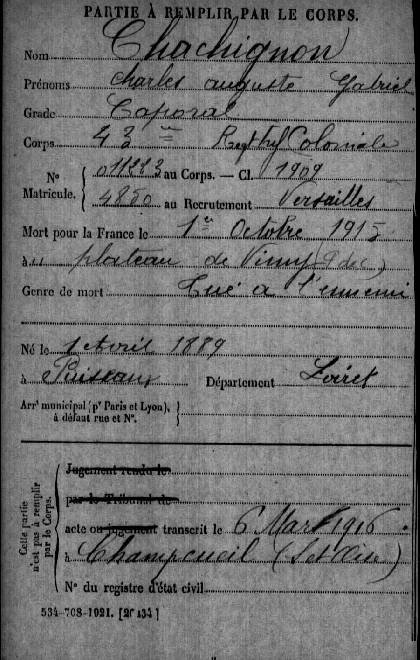 PARTIE À REMPLIR PAR LE CORPS.
Nom Chachignon
Prénoms Charles auguste Gabriel
Grade Caporal
Corps 43e Regt Inf Coloniale
N° Matricule. { 011223 au Corps. — Cl. 1909
4850 au Recrutement Versailles
Mort pour la France le 1er Octobre 1915
à plateau de Vimy (P de C)
Genre de mort Tué à l'ennemi
Né le 1 Avril 1889
à Puiseaux Département Loiret
Arrt municipal (pr Paris et Lyon), à défaut rue et N°.
Cette partie n'est pas à remplir par le Corps.
Jugement rendu le
par le Tribunal de
acte ou jugement transcrit le 6 Mars 1916
à Champcueil (S et Oise)
N° du registre d'état civil
534-708-1921. [26434]